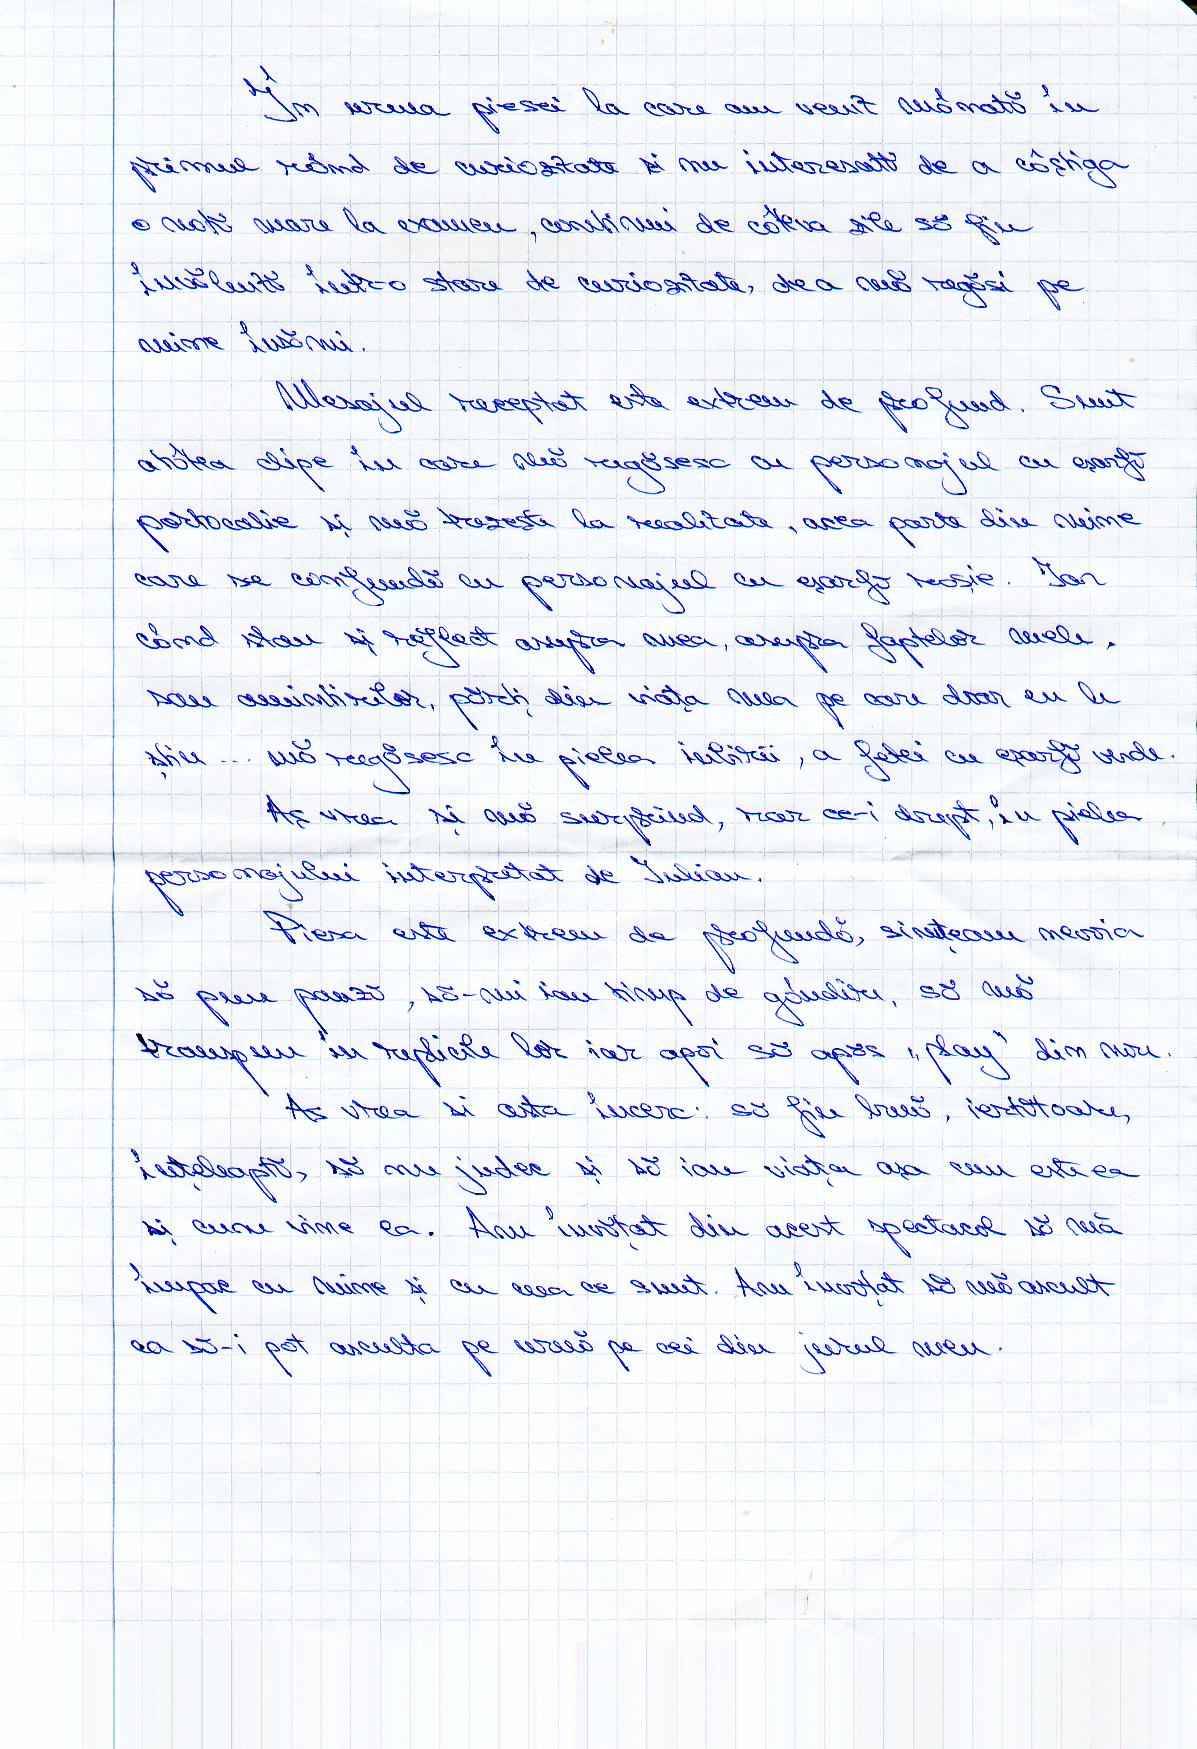 În urma piesei la care am venit mânată în
primul rând de curiozitate și nu interesată de a câștiga
o notă mare la examen, continui de câteva zile să fiu
învăluită într-o stare de curiozitate, de a mă regăsi pe
mine însămi.
Mesajul receptat este extrem de profund. Sunt
atâtea clipe în care mă regăsesc cu personajul cu eșarfă
portocalie și mă trezește la realitate, acea parte din mine
care se confundă cu personajul cu eșarfă roșie. Iar
când stau și reflect asupra mea, asupra faptelor mele,
sau amintirilor, părți din viața mea pe care doar eu le
știu ... mă regăsesc în pielea iubirii, a fetei cu eșarfă verde.
Aș vrea și mă surprind, rar ce-i drept, în pielea
personajului interpretat de Iulian.
Piesa este extrem de profundă, simțeam nevoia
să pun pauză, să-mi iau timp de gândire, să mă
transpun în replicile lor iar apoi să apăs „play” din nou.
Aș vrea și asta încerc: să fiu bună, iertătoare,
înțeleaptă, să nu judec și să iau viața așa cum este ea
și cum vine ea. Am învățat din acest spectacol să mă
împac cu mine și cu ceea ce sunt. Am învățat să mă ascult
ca să-i pot asculta pe urmă pe cei din jurul meu.